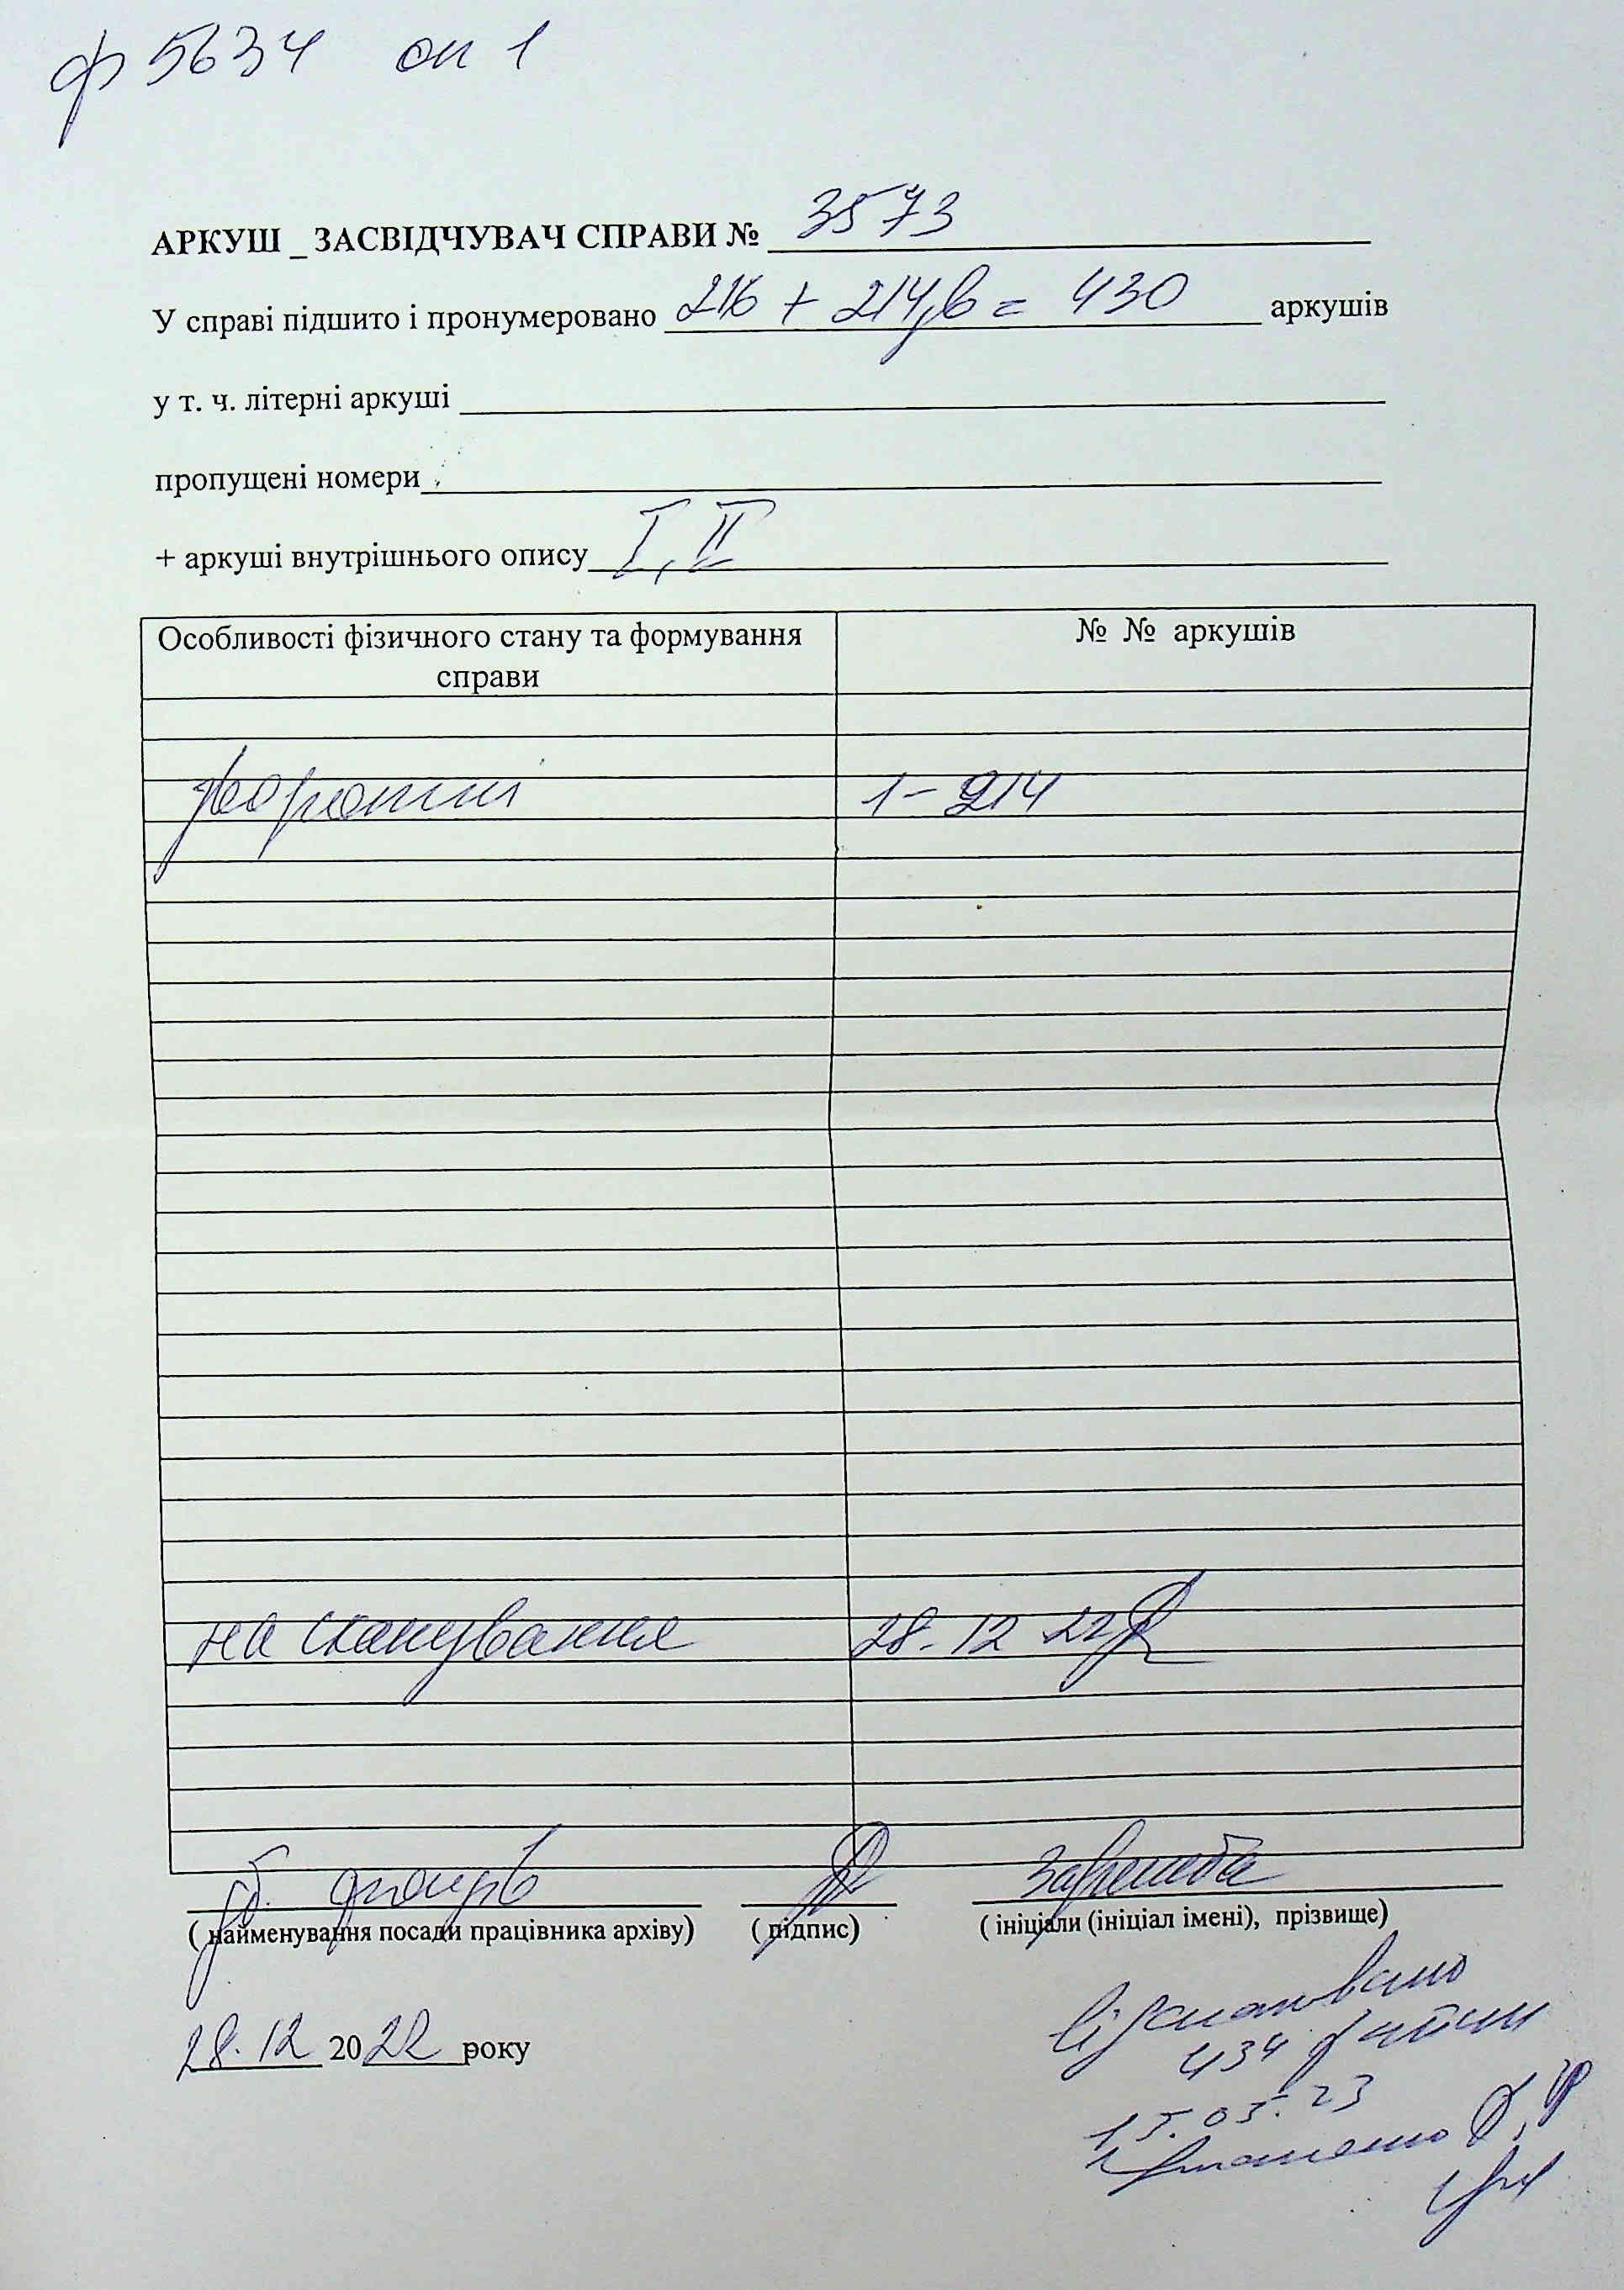 ф 5634 оп 1
АРКУШ _ ЗАСВІДЧУВАЧ СПРАВИ № 3573
У справі підшито і пронумеровано 216 + 214зв = 430 аркушів
у т. ч. літерні аркуші
пропущені номери
+ аркуші внутрішнього опису I, II
Особливості фізичного стану та формування справи № № аркушів
зворотині 1-214
на сканування 28.12 22
зб. фондів
Зарешеба
( найменування посади працівника архіву) ( підпис) ( ініціали (ініціал імені), прізвище)
28.12 2022 року
Відскановано
434 файли
15.03.23